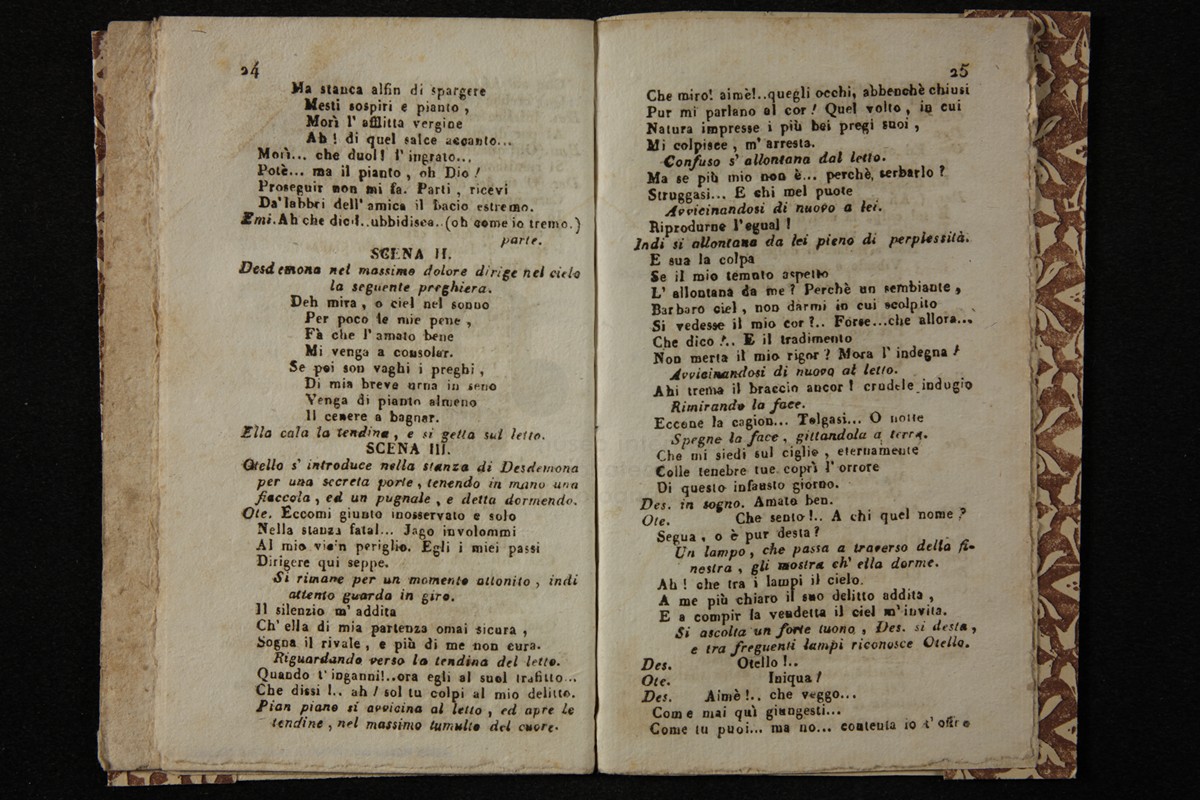 24
Ma stanca alfin di spargere
Mesti sospiri e pianto,
Morì l' afflitta vergine
Ah! di quel salce accanto...
Morì... che duol! l' ingrato...
Potè... ma il pianto, oh Dio!
Proseguir non mi fa. Parti, ricevi
Da' labbri dell' amica il bacio estremo.
Emi. Ah che dici!..ubbidisca..(oh come io tremo.)
parte.
SCENA II.
Desdemona nel massimo dolore dirige nel cielo
la seguente preghiera.
Deh mira, o ciel nel sonno
Per poco le mie pene,
Fà che l' amato bene
Mi venga a consolar.
Se poi son vaghi i preghi,
Di mia breve urna in seno
Venga di pianto almeno
Il cenere a bagnar.
Ella cala la tendina, e si getta sul letto.
SCENA III.
Otello s' introduce nella stanza di Desdemona
per una secreta porte, tenendo in mano una
fiaccola, ed un pugnale, e detta dormendo.
Ote. Eccomi giunto inosservato e solo
Nella stanza fatal... Jago involommi
Al mio vie'n periglio. Egli i miei passi
Dirigere qui seppe.
Si rimane per un momento attonito, indi
attento guarda in giro.
Il silenzio m' addita
Ch' ella di mia partenza omai sicura,
Sogna il rivale, e più di me non cura.
Riguardando verso la tendina del letto.
Quando t' inganni!..ora egli al suol trafitto...
Che dissi !.. ah! sol tu colpi al mio delitto.
Pian piano si avvicina al letto, ed apre le
tendine, nel massimo tumulto del cuore.
25
Che miro! aimè!..quegli occhi, abbenchè chiusi
Pur mi parlano al cor! Quel volto, in cui
Natura impresse i più bei pregi suoi,
Mi colpisce, m' arresta.
Confuso s' allontana dal letto.
Ma se più mio non è... perchè, serbarlo?
Struggasi... E chi mel puote
Avvicinandosi di nuovo a lei.
Riprodurne l' egual!
Indi si allontana da lei pieno di perplessità.
E sua la colpa
Se il mio temuto aspetto
L' allontana da me? Perchè un sembiante,
Barbaro ciel, non darmi in cui scolpito
Si vedesse il mio cor?.. Forse...che allora...
Che dico!.. E il tradimento
Non merta il mio rigor? Mora l' indegna!
Avvicinandosi di nuovo al letto.
Ahi trema il braccio ancor! crudele indugio
Rimirando la face.
Eccone la cagion... Tolgasi... O notte
Spegne la face, gittandola a terra.
Che mi siedi sul ciglio, eternamente
Colle tenebre tue coprì l' orrore
Di questo infausto giorno.
Des. in sogno. Amato ben.
Ote. Che sento!.. A chi quel nome?
Segua, o è pur desta?
Un lampo, che passa a traverso della fi-
nestra, gli mostra ch' ella dorme.
Ah! che tra i lampi il cielo.
A me più chiaro il suo delitto addita,
E a compir la vendetta il ciel m' invita.
Si ascolta un forte tuono, Des. si desta,
e tra freguenti lampi riconosce Otello.
Des. Otello!..
Ote. Iniqua!
Des. Aimè!.. che veggo...
Come mai quì giungesti...
Come tu puoi... ma no... contenta io t' offro